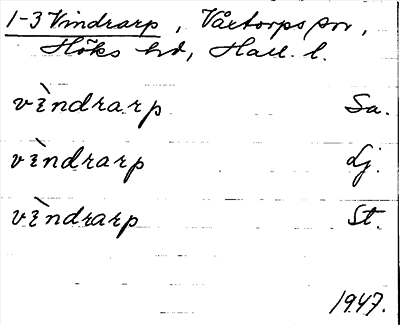 1-3 Vindrarp, Våxtorps sn,
Höks hd, Hall. l.
vìndrarp Sa.
vìndrarp Lj.
vìndrarp St.
1947.